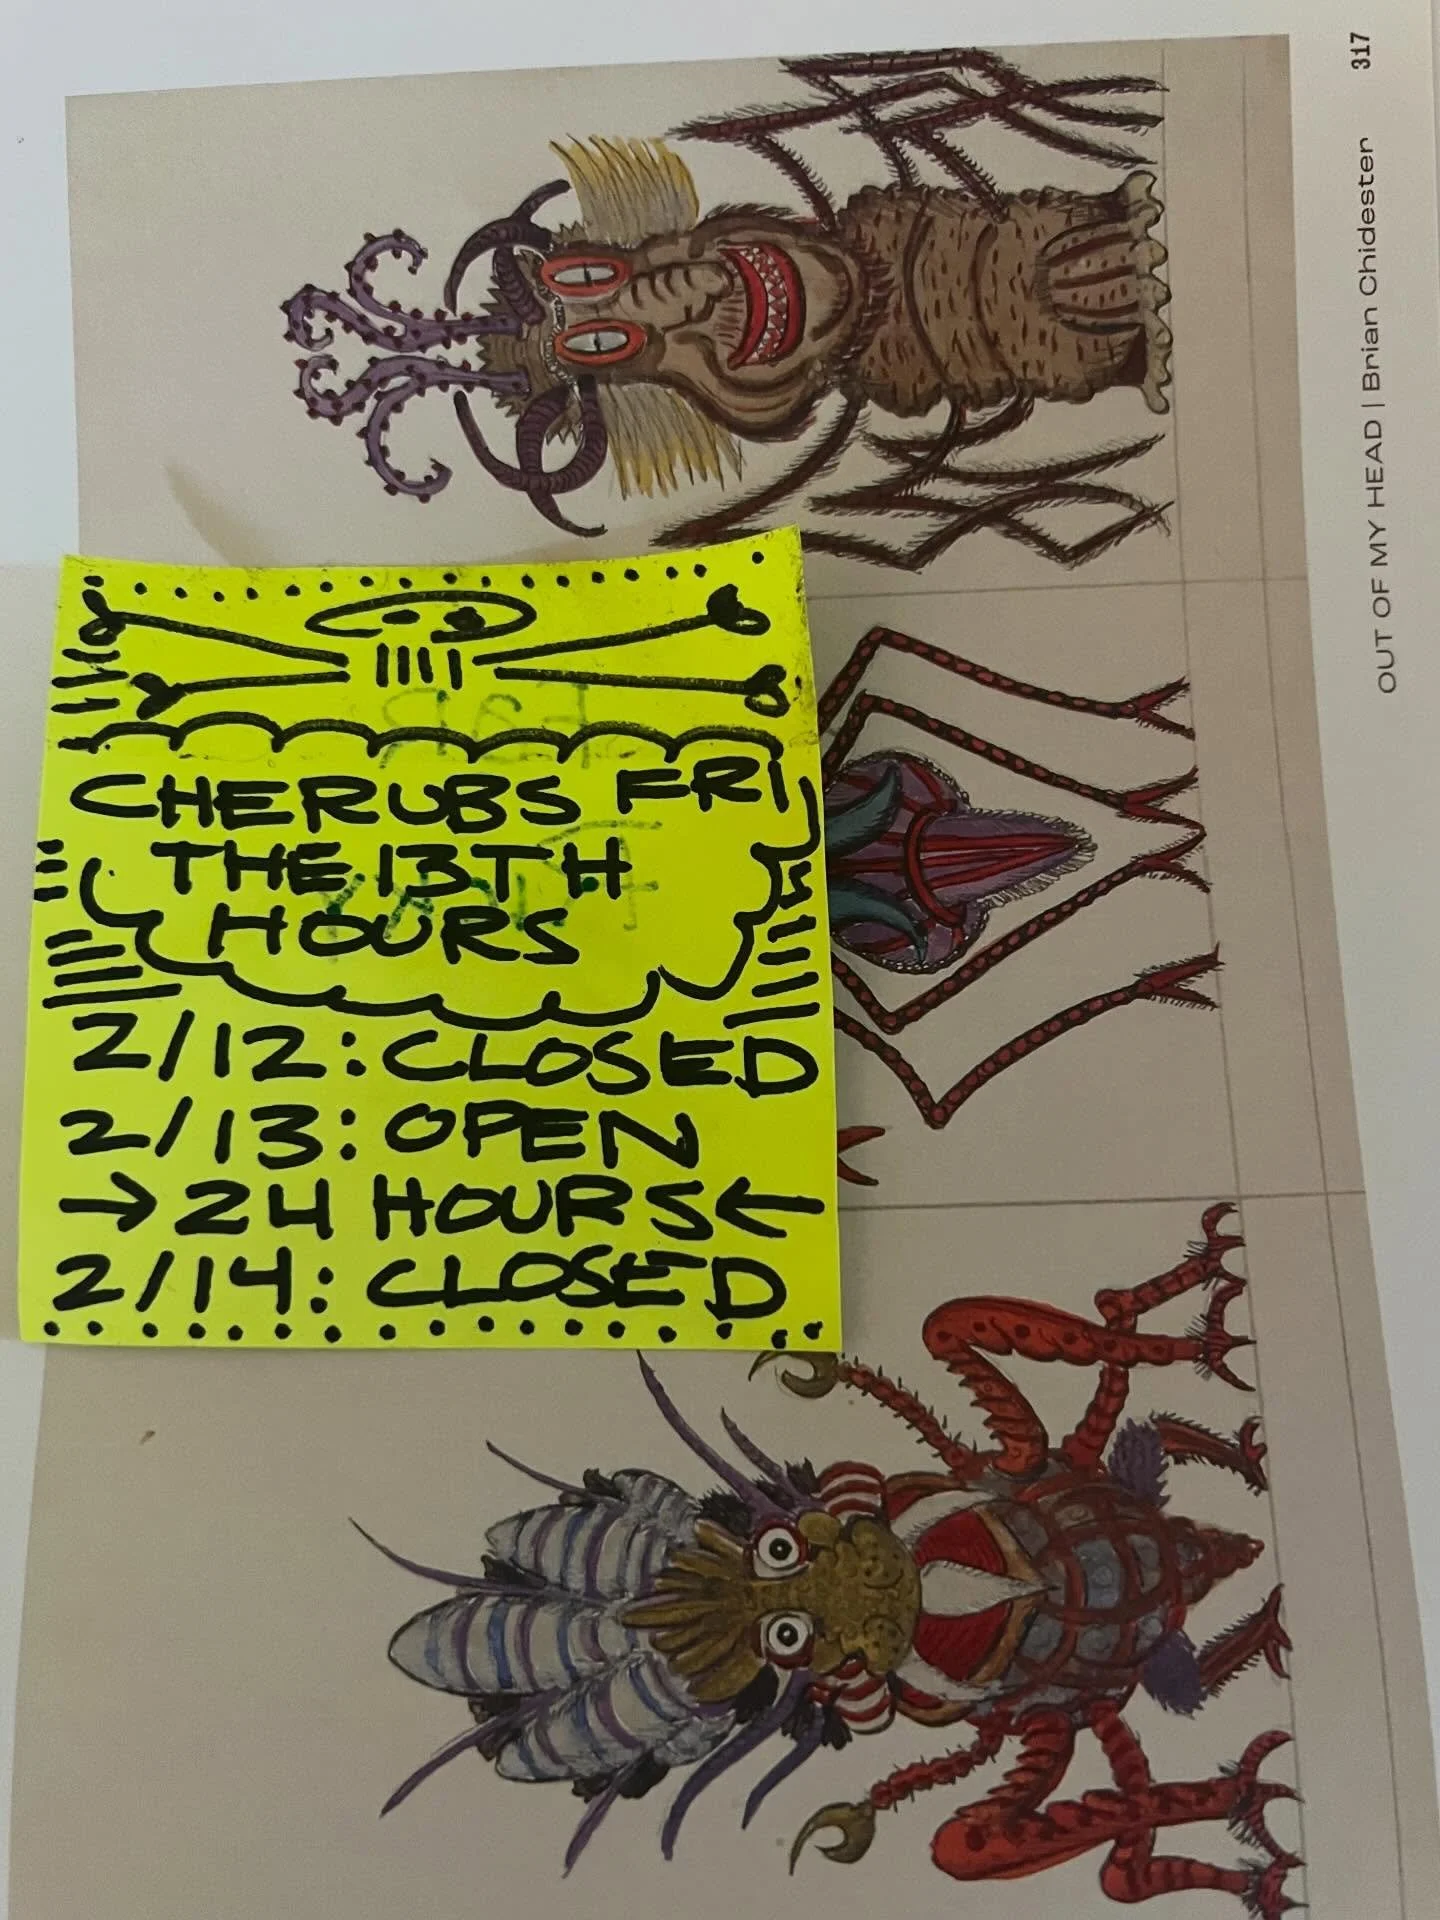 CHERUBS FRI
THE 13TH
HOURS
2/12: CLOSED
2/13: OPEN
→ 24 HOURS ←
2/14: CLOSED
OUT OF MY HEAD | Brian Chidester 317